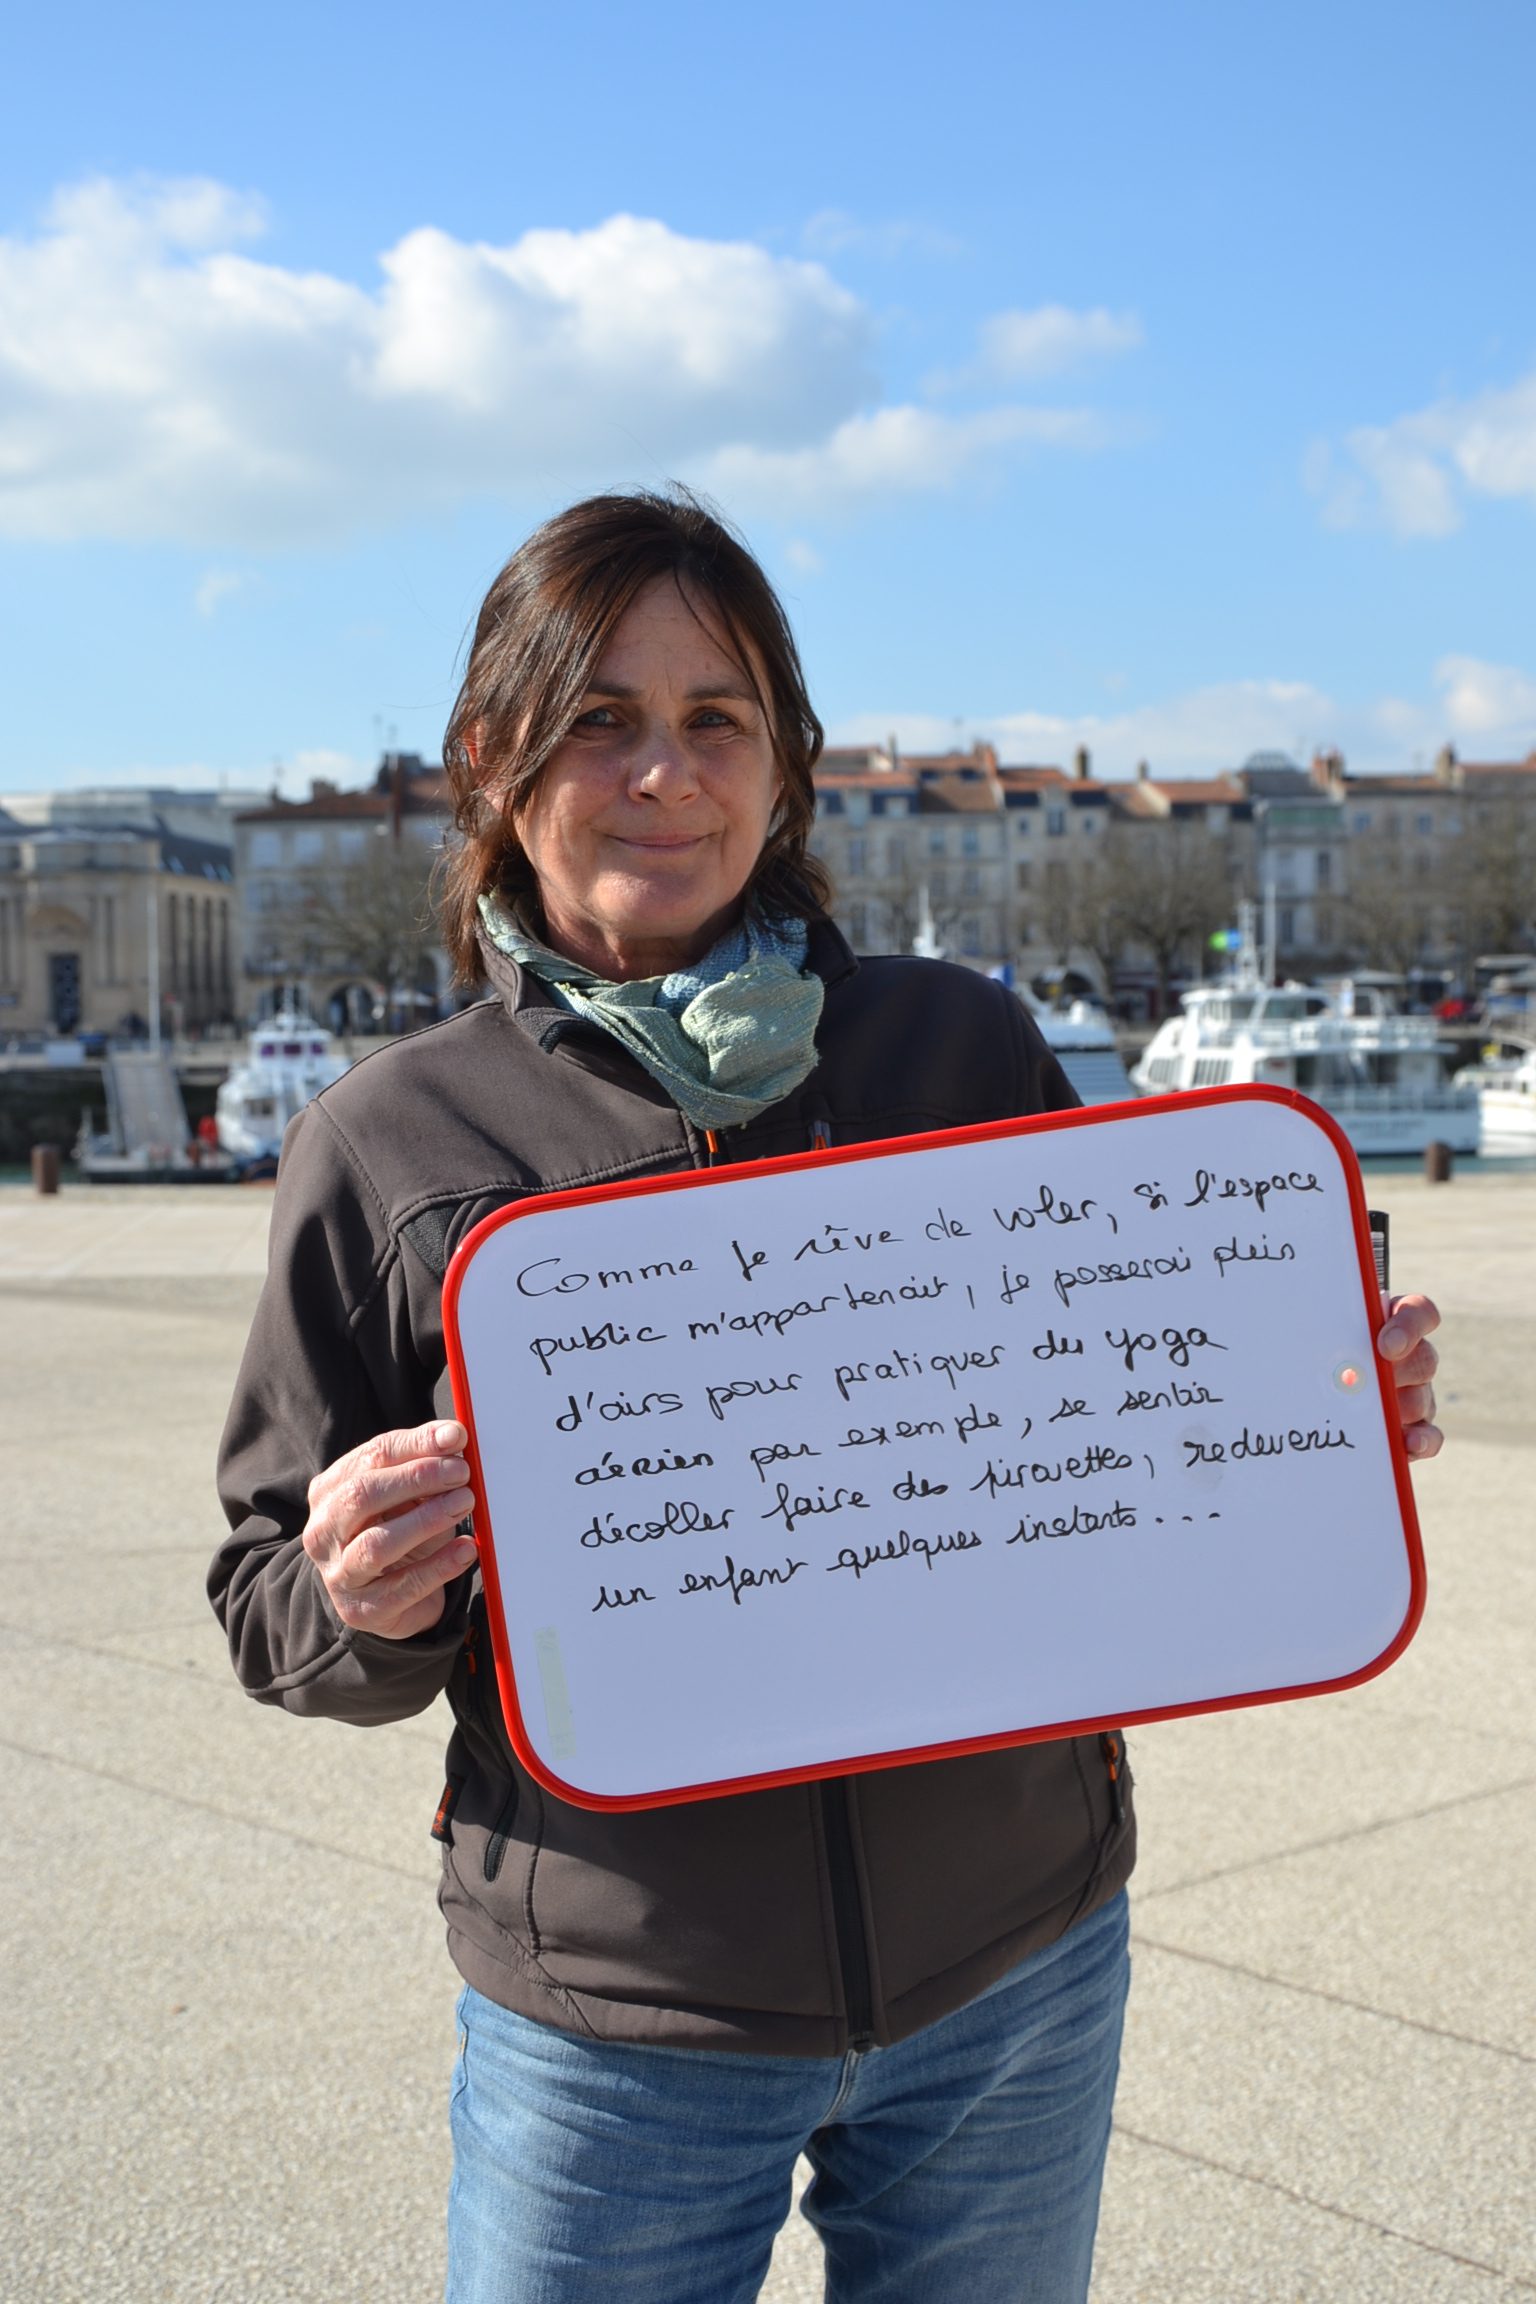 Comme je rêve de voler, si l'espace
public m'appartenait, je posserai plein
d'airs pour pratiquer du yoga
aérien par exemple, se sentir
décoller faire des pirouettes, redevenir
un enfant quelques instants...